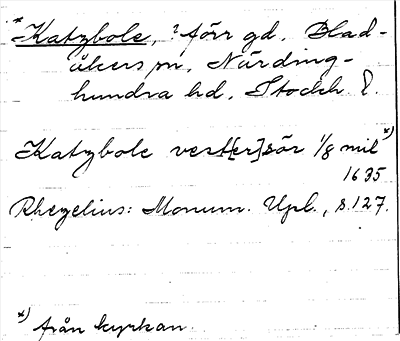 *Katzbole, ? förr gd. Blad-
åkers sn, Närding-
hundra hd, Stockh l.
Katzbole vest[er]sör 1/8 mil x)
1635
Rhezelius: Monum. Upl., s. 127.
x) från kyrkan.